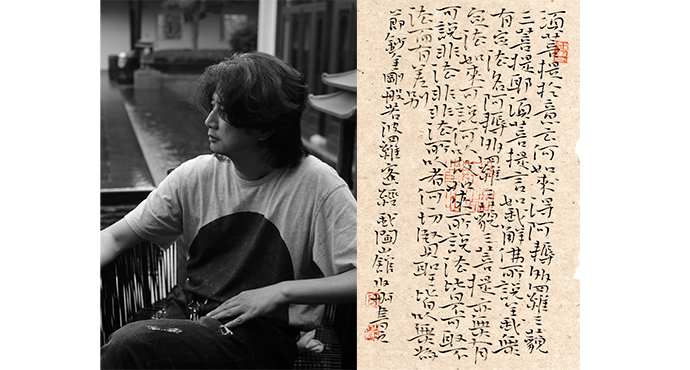 須菩提於意云何如來得阿耨多羅三藐
三菩提耶須菩提言如我解佛所說義無
有定法名阿耨多羅三藐三菩提亦無有
定法如來可說何以故如來所說法皆不可取不
可說非法非非法所以者何一切賢聖皆以無為
法而有差別
節鈔金剛般若波羅蜜經